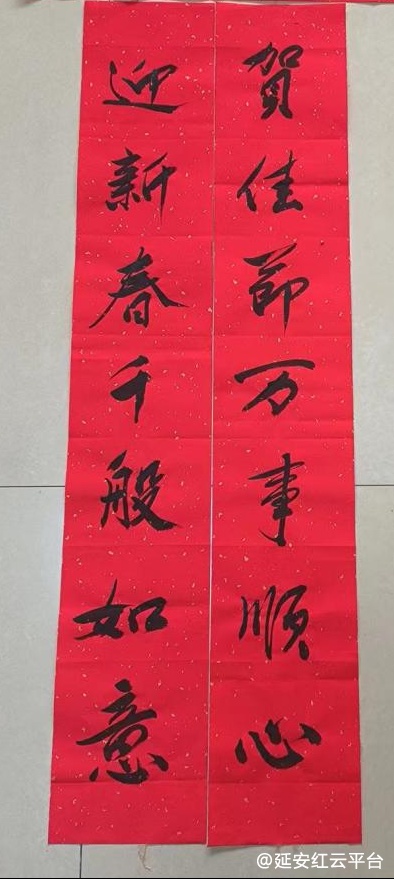 賀佳節万事順心
迎新春千般如意
@延安红云平台